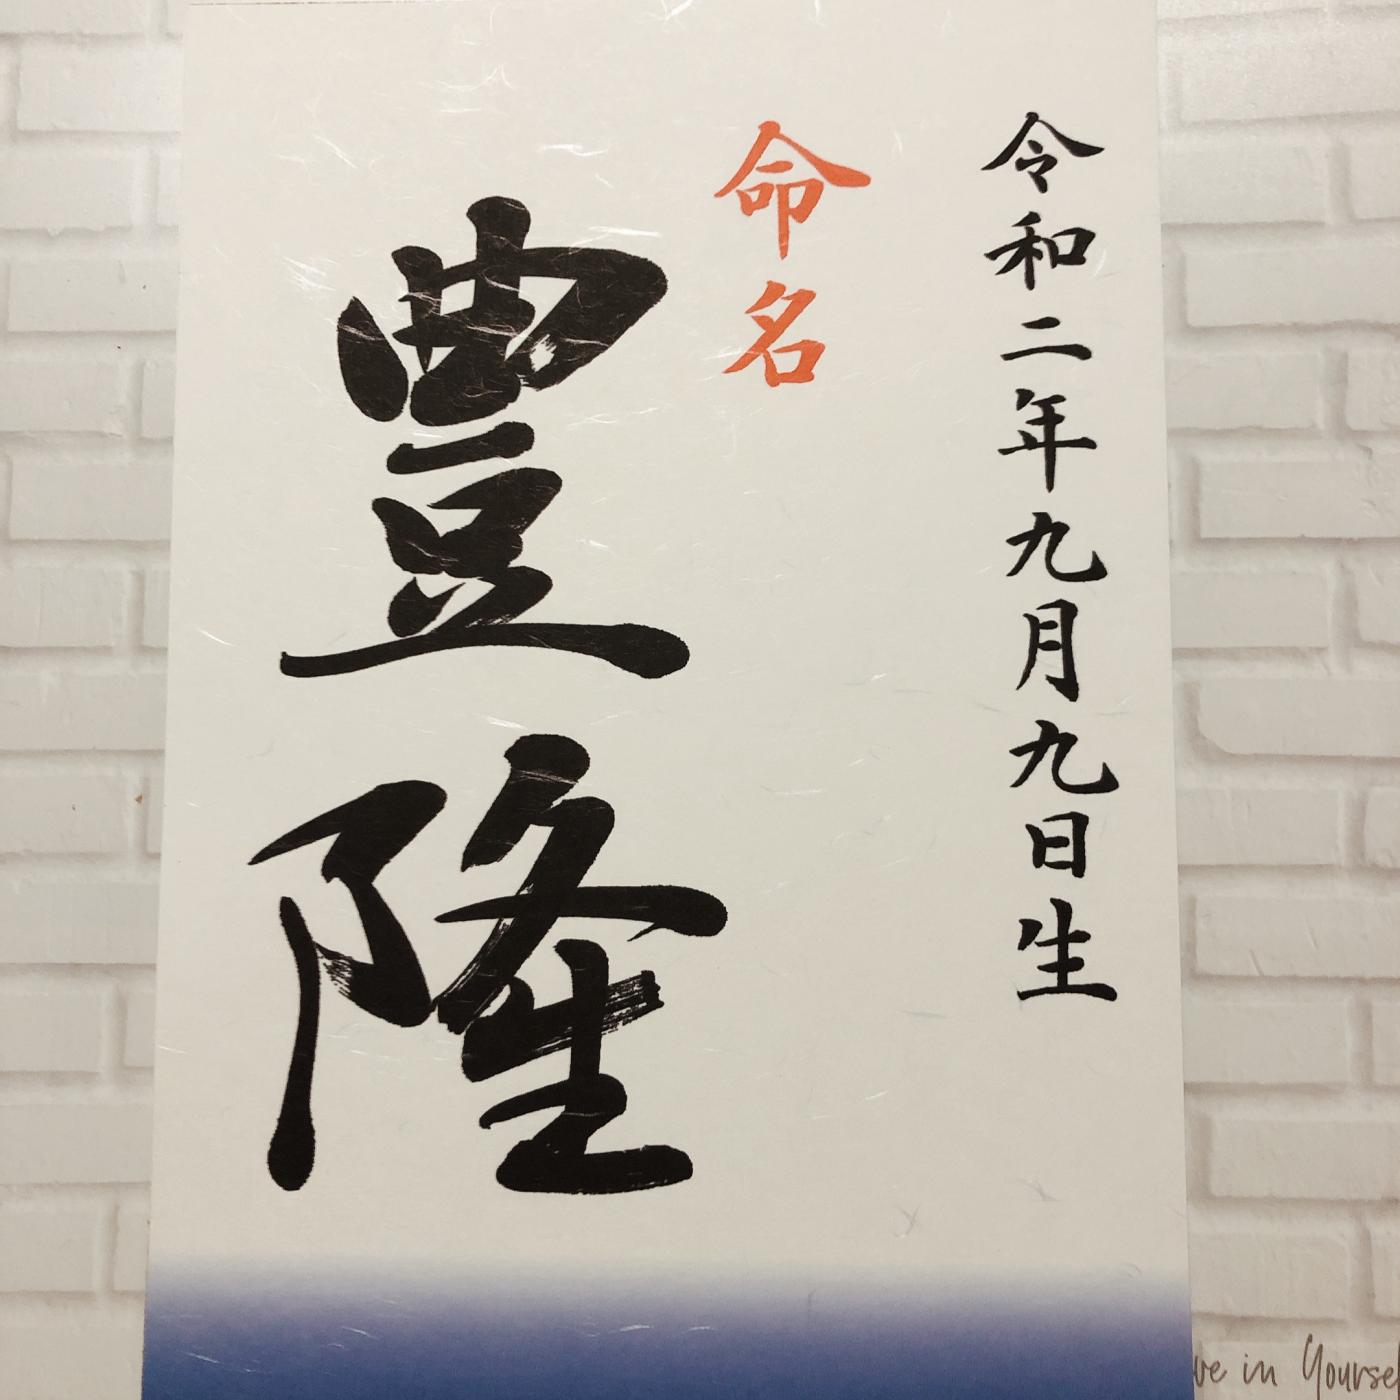 令和二年九月九日生
命名
豊隆
ve in Yourse